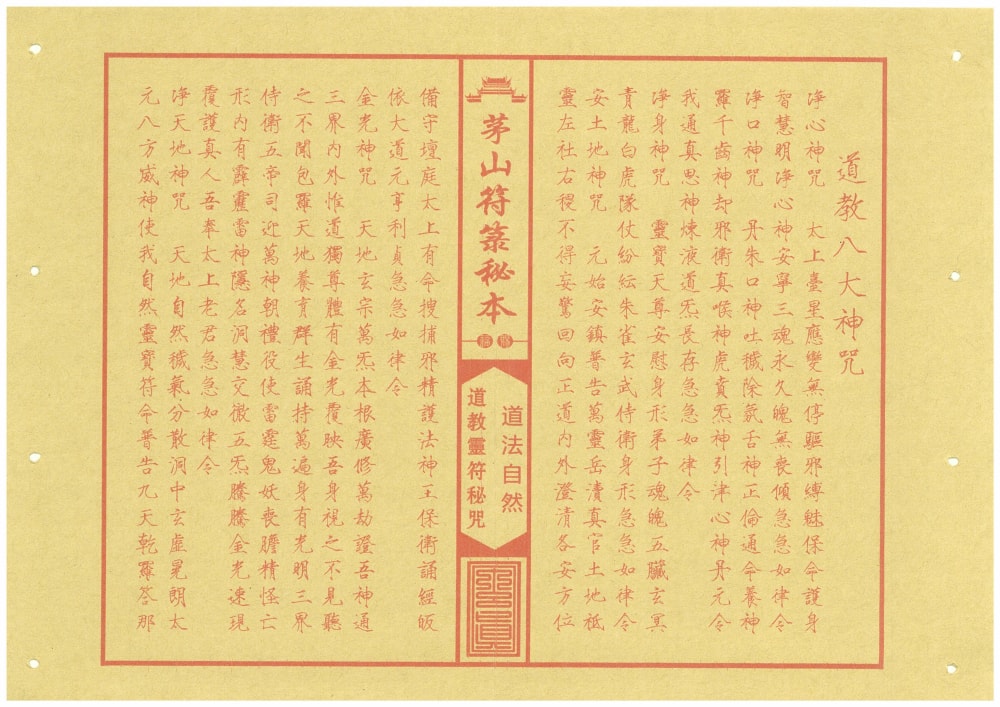 道教八大神咒
淨心神咒　太上臺星應變無停驅邪縛魅保命護身
智慧明淨心神安寧三魂永久魄無喪傾急急如律令
淨口神咒　丹朱口神吐穢除氛舌神正倫通命養神
羅千齒神却邪衛真喉神虎賁炁神引津心神丹元令
我通真思神煉液道炁長存急急如律令
淨身神咒　靈寶天尊安慰身形弟子魂魄五臟玄冥
青龍白虎隊仗紛紜朱雀玄武侍衛身形急急如律令
安土地神咒　元始安鎮普告萬靈岳瀆真官土地祇
靈左社右稷不得妄驚回向正道內外澄清各安方位
茅山符箓秘本
道法自然
道教靈符秘咒
備守壇庭太上有命搜捕邪精護法神王保衛誦經皈
依大道元亨利貞急急如律令
金光神咒　天地玄宗萬炁本根廣修萬劫證吾神通
三界內外惟道獨尊體有金光覆映吾身視之不見聽
之不聞包羅天地養育群生誦持萬遍身有光明三界
侍衛五帝司迎萬神朝禮役使雷霆鬼妖喪膽精怪亡
形內有霹靂雷神隱名洞慧交徹五炁騰騰金光速現
覆護真人吾奉太上老君急急如律令
淨天地神咒　天地自然穢氣分散洞中玄虛晃朗太
元八方威神使我自然靈寶符命普告九天乾羅答那